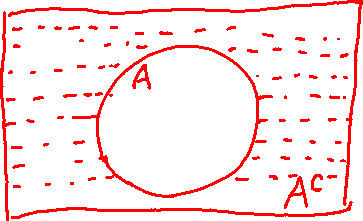 A
Aᶜ